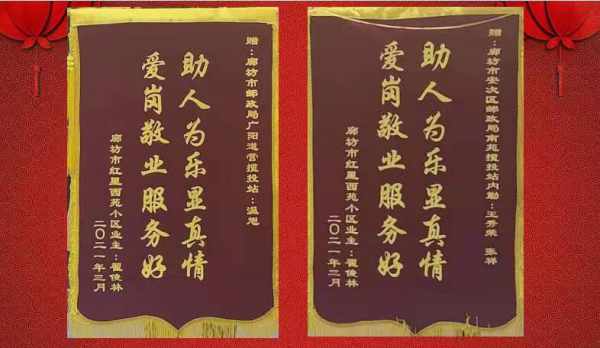 赠：廊坊市邮政局广阳道营揽投站：温旭
助人为乐显真情
爱岗敬业服务好
廊坊市红星西苑小区业主：翟俊林
二〇二一年三月
赠：廊坊市安次区邮政局南苑揽投站内勤：王秀荣 张祥
助人为乐显真情
爱岗敬业服务好
廊坊市红星西苑小区业主：翟俊林
二〇二一年三月